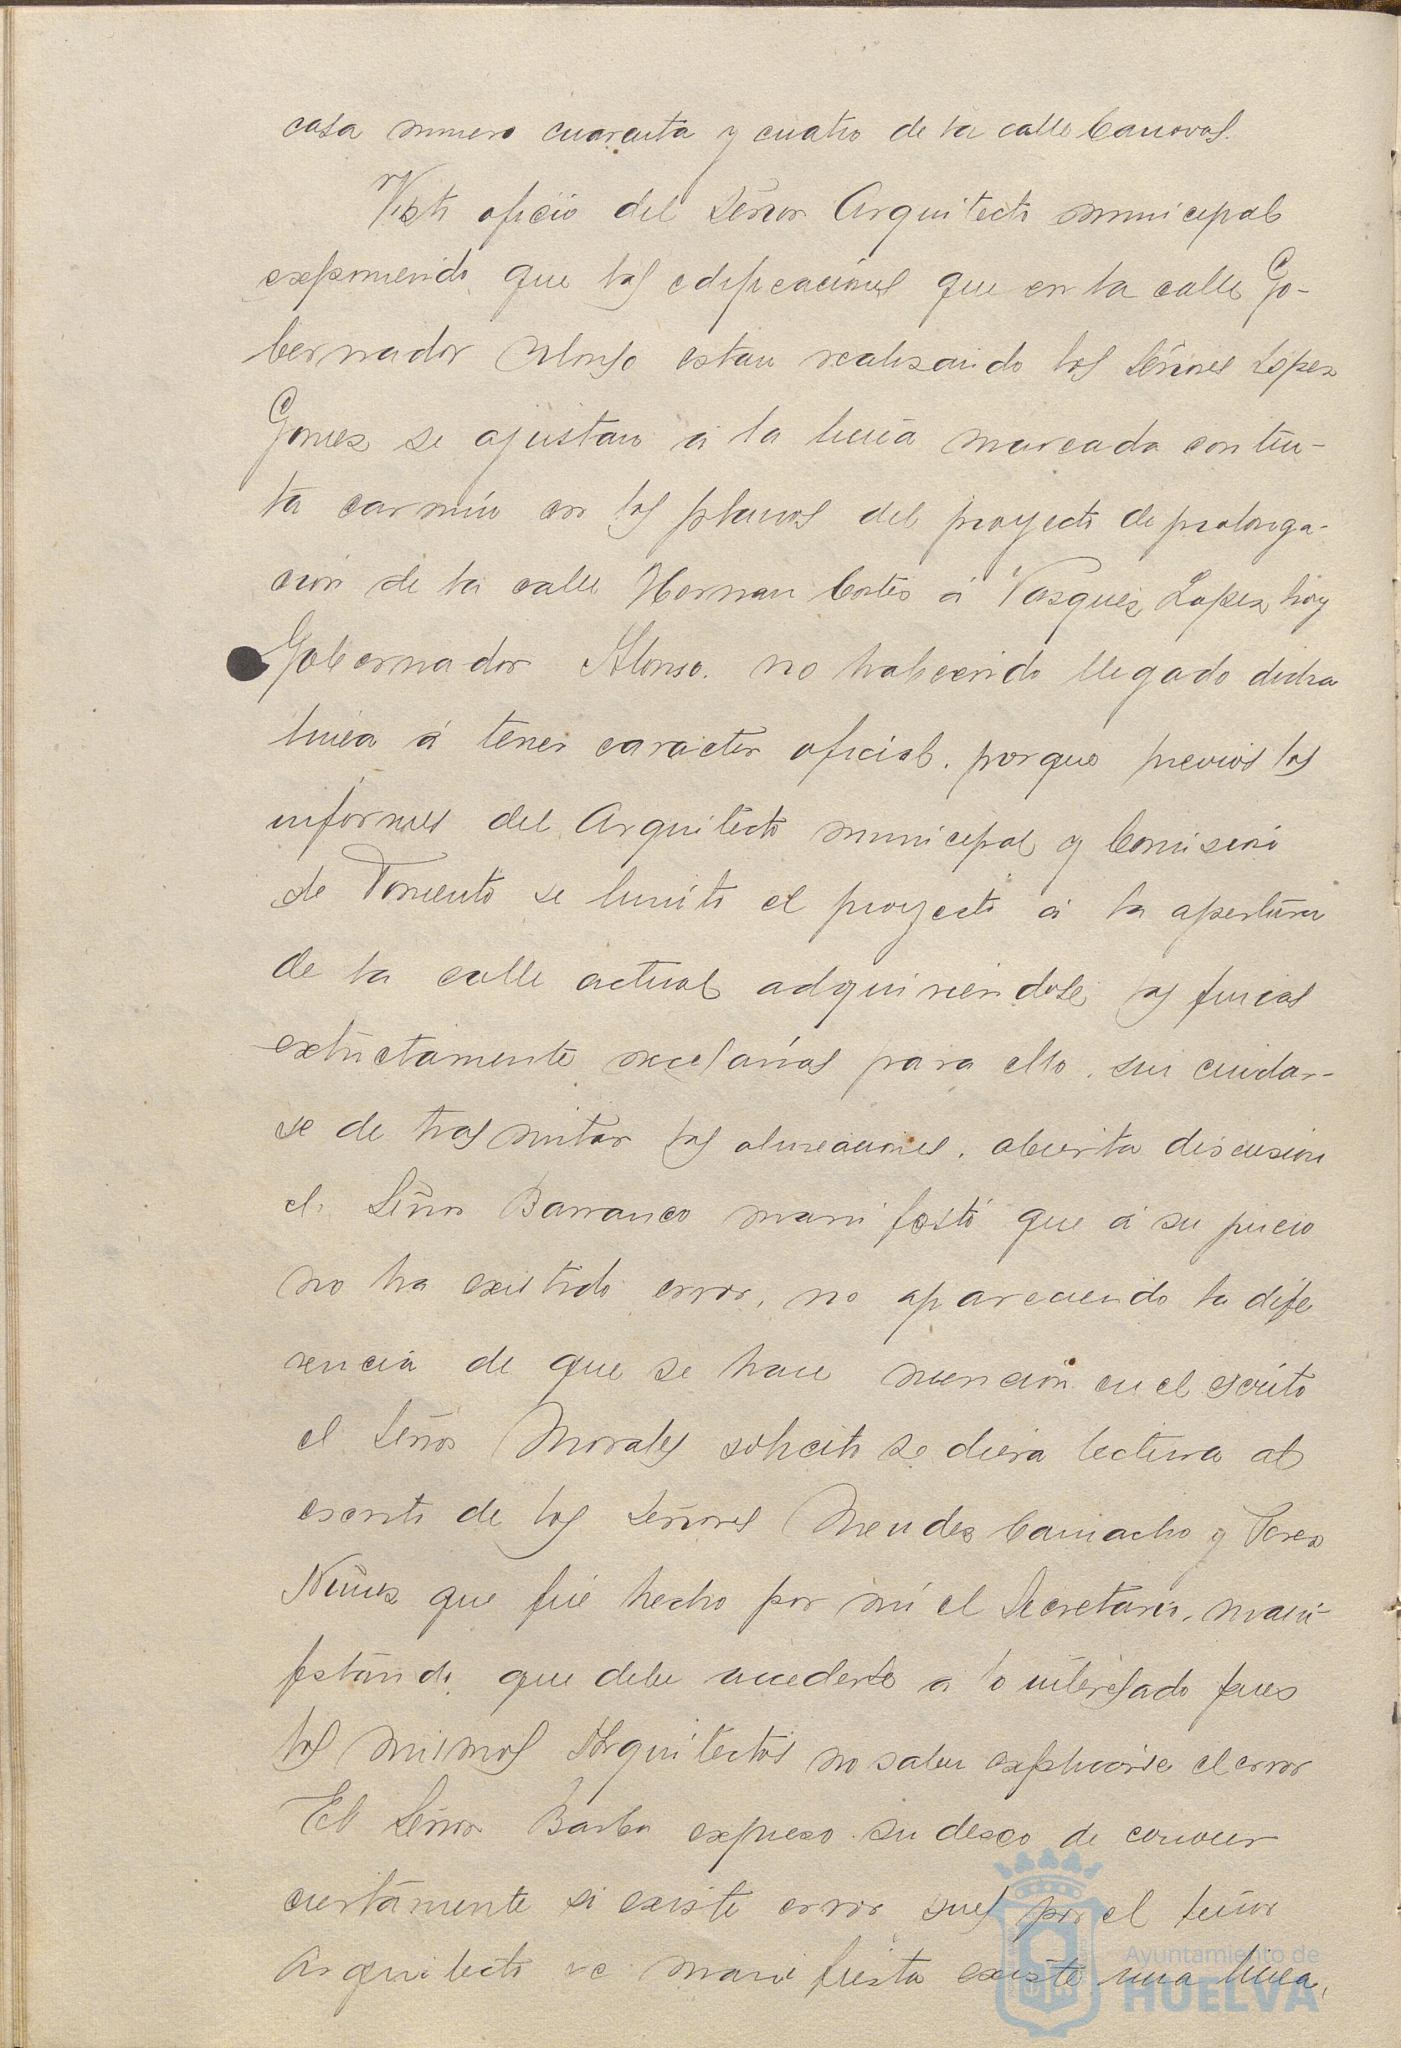 casa numero cuarenta y cuatro de la calle Canovas.
Visto oficio del Señor Arquitecto municipal
exponiendo que las edificaciones que en la calle Go-
bernador Alonso estan realizando los Señores Lopez
Gomez se ajustan á la linea marcada con tin-
ta carmin en los planos del proyecto de prolonga-
cion de la calle Hernan Cortés á Vazquez Lopez hoy
Gobernador Alonso. no habiendo llegado dicha
linea á tener caracter oficial. porque previos los
informes del Arquitecto municipal y Comisión
de Fomento se limitó el proyecto á la apertura
de la calle actual adquiriendose las fincas
extrictamente necesarias para ello. sin cuidar-
se de trasmitar las alineaciones. abierta discusion
el Señor Barranco manifestó que á su juicio
no ha existido error, no apareciendo la dife
rencia de que se hace mención en el escrito
el Señor Morales solicitó se diera lectura al
escrito de los Señores Mendez Camacho y Perez
Nuñez que fué hecho por mí el Secretario, mani-
festando que debe accederse a lo interesado pues
los mismos Arquitectos no saben explicarse el error
El Señor Barba expreso su deseo de conocer
ciertamente si existe error pues por el Señor
Arquitecto se manifiesta existe una linea,
Ayuntamiento de
HUELVA